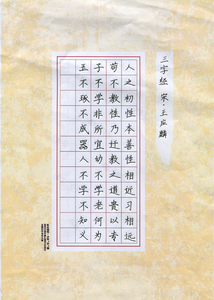 三字经 宋·王应麟
人之初性本善性相近习相远
苟不教性乃迁教之道贵以专
子不学非所宜幼不学老何为
玉不琢不成器人不学不知义